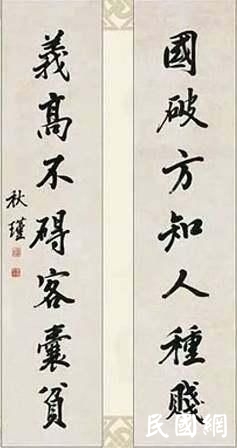 國破方知人種賤
義高不碍客囊貧
秋瑾
民國網